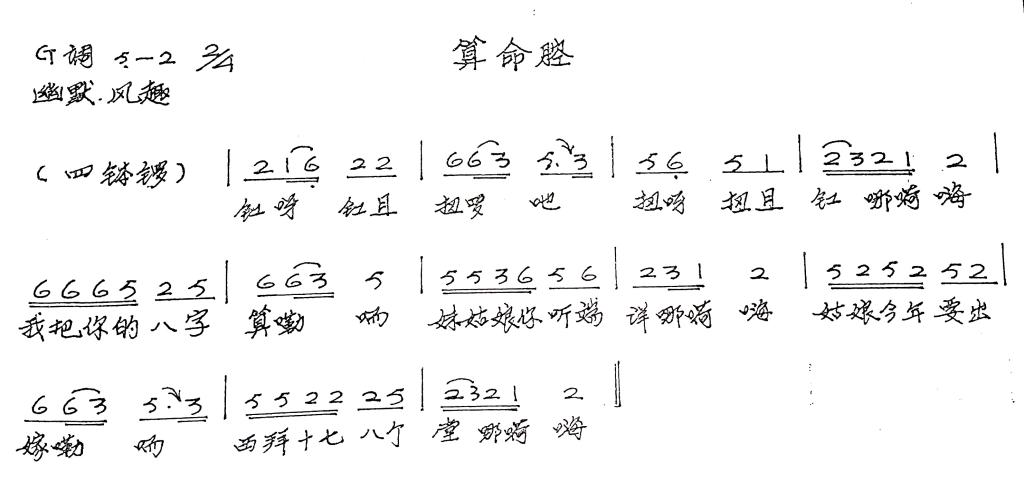 算命腔
G调 5—2 2/4
幽默.风趣
(四钵锣) | 2 1 6 2 2 | 6 6 3 5. 3 | 5 6 5 1 | 2 3 2 1 2 |
扭呀 扭且 扭罗 吔 扭呀 扭且 扭 哪嗬 嗨
6 6 6 5 2 5 | 6 6 3 5 | 5 5 3 6 5 6 | 2 3 1 2 | 5 2 5 2 5 2 |
我把你的八字 算嘞 呐 妹姑娘你听端 详哪嗬 嗨 姑娘今年要出
6 6 3 5. 3 | 5 5 2 2 2 5 | 2 3 2 1 2 ‖
嫁嘞 呐 西拜十七八个 堂 哪嗬 嗨